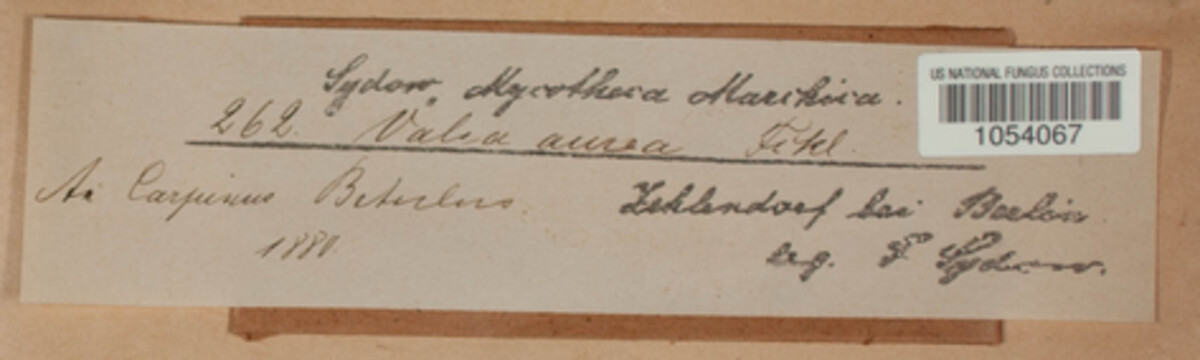 Sydow, Mycotheca Marchica.
262. Valsa aurea Fckl.
An Carpinus Betulus.
1880.
Zehlendorf bei Berlin
leg. P. Sydow.
US NATIONAL FUNGUS COLLECTIONS
1054067